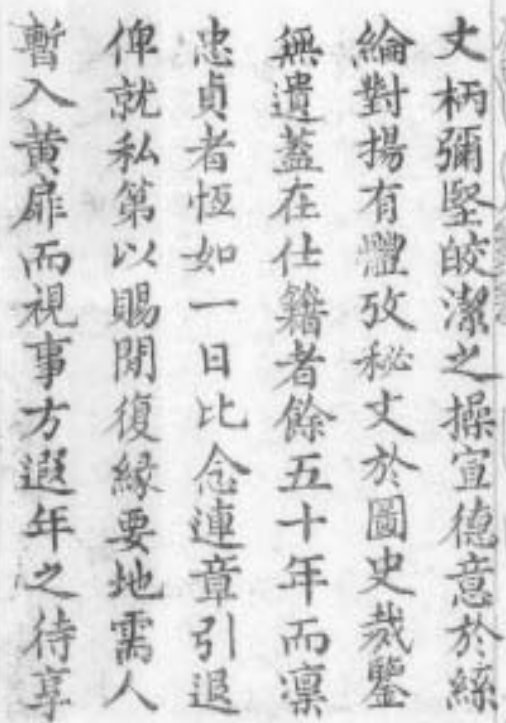 文柄彌堅皎潔之操宣德意於絲
綸對揚有體攷秘文於圖史裁鑒
無遺蓋在仕籍者餘五十年而凛
忠貞者恆如一日比念連章引退
俾就私第以賜閒復緣要地需人
暫入黄扉而視事方遐年之待享